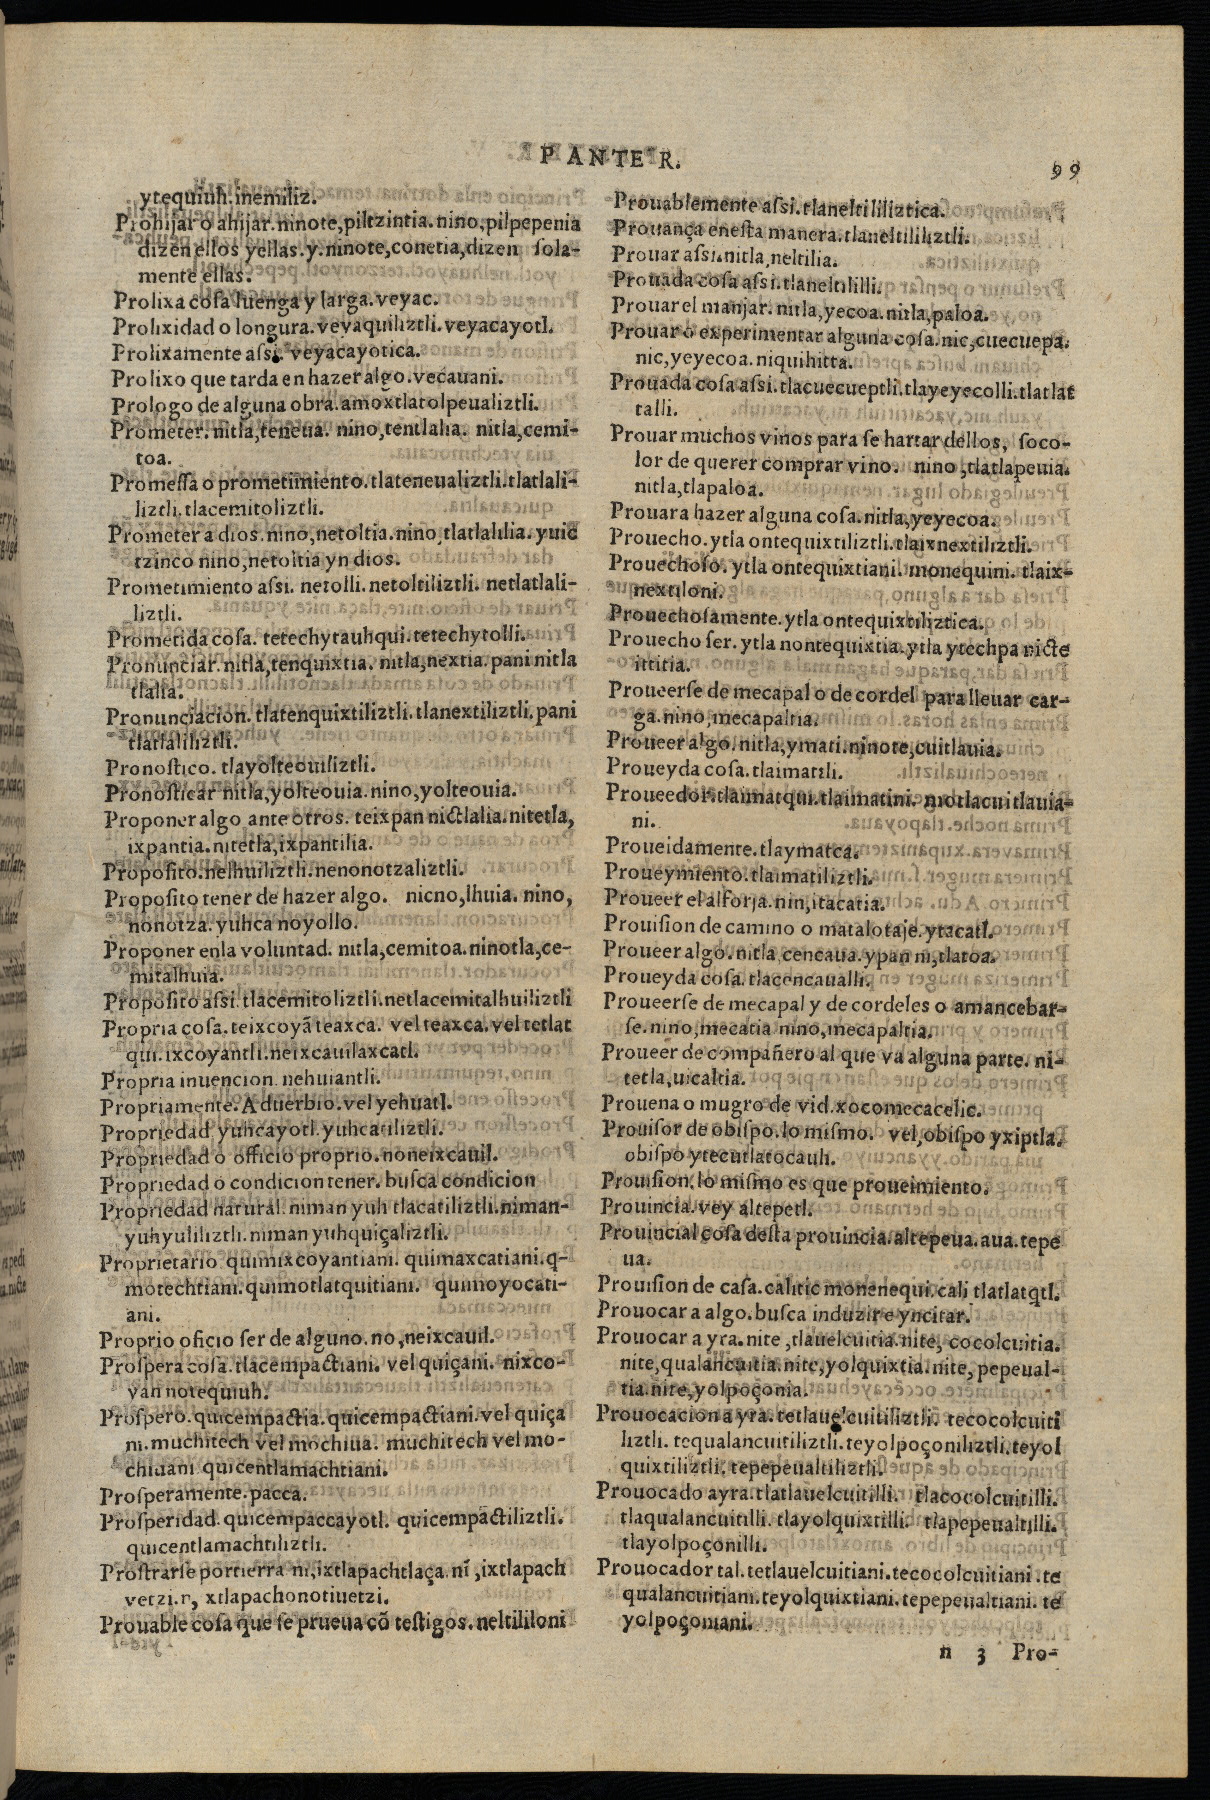 P ANTE R.
99
ytequiuh.inemiliz.
Prohijar o ahijar.ninote,piltzintia.nino,pilpepenia
dizen ellos yellas.y.ninote,conetia,dizen ſola-
mente ellas.
Prolixa coſa luenga y larga.veyac.
Prolixidad o longura.veyaquiliztli.veyacayotl.
Prolixamente aſsi. veyacayotica.
Prolixo que tarda en hazer algo.vecauani.
Prologo de alguna obra.amoxtlatolpeualiztli.
Prometer.nitla,teneua. nino,tentlalia. nitla,cemi-
toa.
Promeſſa o prometimiento.tlateneualiztli.tlatlali-
liztli.tlacemitoliztli.
Prometer a dios.nino,netoltia.nino,tlatlalilia.yuic
tzinco nino,netoltia yn dios.
Prometimiento aſsi. netolli.netoltiliztli. netlatlali-
liztli.
Prometida coſa. tetechytauhqui.tetechytolli.
Pronunciar.nitla,tenquixtia. nitla,nextia.pani nitla
tlalia.
Pronunciacion. tlatenquixtiliztli.tlanextiliztli.pani
tlatlaliliztli.
Pronoſtico. tlayolteouiliztli.
Pronoſticar nitla,yolteouia.nino,yolteouia.
Proponer algo ante otros. teixpan nictlalia.nitetla,
ixpantia.nitetla,ixpantilia.
Propoſito.nelhuiliztli.nenonotzaliztli.
Propoſito tener de hazer algo. nicno,lhuia. nino,
nonotza.yuhca noyollo.
Proponer enla voluntad. nitla,cemitoa.ninotla,ce-
mitalhuia.
Propoſito aſsi.tlacemitoliztli.netlacemitalhuiliztli
Propria coſa.teixcoyã teaxca. vel teaxca.vel tetlat
qui.ixcoyantli.neixcauilaxcatl.
Propria inuencion.nehuiantli.
Propriamente.Aduerbio.vel yehuatl.
Propriedad yuhcayotl.yuhcatiliztli.
Propriedad o officio proprio.noneixcauil.
Propriedad o condicion tener.buſca condicion
Propriedad natural.niman yuh tlacatiliztli.niman-
yuhyuliliztli.niman yuhquiçaliztli.
Proprietario quimixcoyantiani. quimaxcatiani.q-
motechtiani.quimotlatquitiani. quimoyocati-
ani.
Proprio oficio ſer de alguno.no,neixcauil.
Proſpera coſa.tlacempactiani. vel quiçani. nixco-
yan notequiuh.
Proſpero.quicempactia.quicempactiani.vel quiça
ni.muchitech vel mochiua. muchitech vel mo-
chiuani quicentlamachtiani.
Proſperamente.pacca.
Proſperidad.quicempaccayotl. quicempactiliztli.
quicentlamachtiliztli.
Proſtrarſe por tierra ni,ixtlapachtlaça.ni,ixtlapach
vetzi.n, xtlapachonotiuetzi.
Prouable coſa que ſe prueua cõ teſtigos.neltililoni
Prouablemente aſsi.tlaneltililiztica.
Prouança eneſta manera.tlaneltililiztli.
Prouar aſsi.nitla,neltilia.
Prouada coſa aſsi.tlaneltililli.
Prouar el manjar.nitla,yecoa.nitla,paloa.
Prouar o experimentar alguna coſa.nic,cuecuepa.
nic,yeyecoa.niquihitta.
Prouada coſa aſsi.tlacuecueptli.tlayeyecolli.tlatlat
talli.
Prouar muchos vinos para ſe hartar dellos, ſoco-
lor de querer comprar vino. nino,tlatlapeuia.
nitla,tlapaloa.
Prouar a hazer alguna coſa.nitla,yeyecoa.
Prouecho.ytla ontequixtiliztli.tlaixnextiliztli.
Prouechoſo.ytla ontequixtiani.monequini. tlaix-
nextiloni.
Prouechoſamente.ytla ontequixtiliztica.
Prouecho ſer.ytla nontequixtia.ytla ytechpa nicte
ittitia.
Proueerſe de mecapal o de cordel para lleuar car-
ga.nino,mecapaltia.
Proueer algo.nitla,ymati.ninote,cuitlauia.
Proueyda coſa.tlaimattli.
Proueedor.tlaimatqui.tlaimatini. motlacuitlauia-
ni.
Proueidamente.tlaymatca.
Proueymiento.tlaimatiliztli.
Proueer el alforja.nin,itacatia.
Prouiſion de camino o matalotaje.ytacatl.
Proueer algo.nitla,cencaua.ypan ni,tlatoa.
Proueyda coſa.tlacencaualli.
Proueerſe de mecapal y de cordeles o amancebar-
ſe.nino,mecatia nino,mecapaltia.
Proueer de compañero al que va alguna parte. ni-
tetla,uicaltia.
Prouena o mugro de vid.xocomecacelic.
Prouiſor de obiſpo.lo miſmo. vel,obiſpo yxiptla.
obiſpo ytecutlatocauh.
Prouiſion.lo miſmo es que proueimiento.
Prouincia.vey altepetl.
Prouincial coſa deſta prouincia.altepeua.aua.tepe
ua.
Prouiſion de caſa.calitic monenequi.cali tlatlatqtl.
Prouocar a algo.buſca induzir e yncitar.
Prouocar a yra.nite,tlauelcuitia.nite, cocolcuitia.
nite,qualancuitia.nite,yolquixtia.nite, pepeual-
tia.nite,yolpoçonia.
Prouocacion a yra.tetlauelcuitiliztli. tecocolcuiti
liztli. tequalancuitiliztli.teyolpoçoniliztli.teyol
quixtiliztli.tepepeualtiliztli.
Prouocado ayra.tlatlauelcuitilli. tlacocolcuitilli.
tlaqualancuitilli. tlayolquixtilli. tlapepeualtilli.
tlayolpoçonilli.
Prouocador tal.tetlauelcuitiani.tecocolcuitiani.te
qualancuitiani.teyolquixtiani.tepepeualtiani. te
yolpoçoniani.
n 3 Pro-